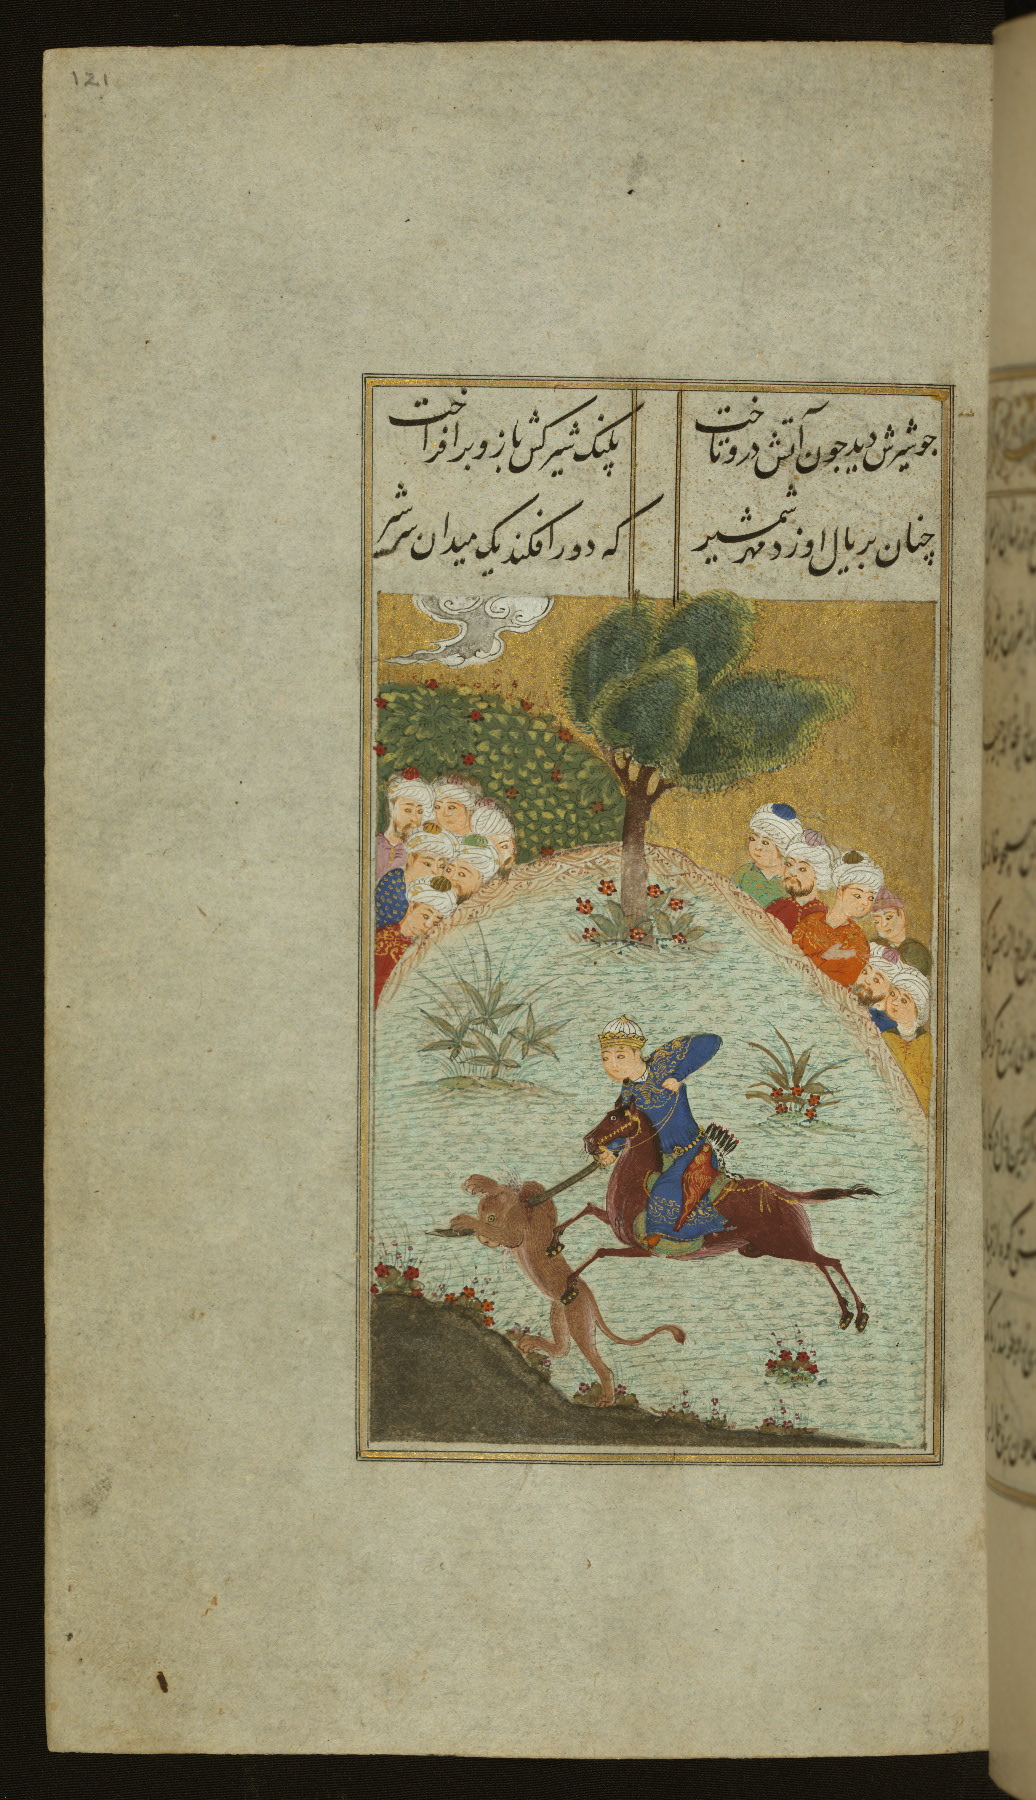 121
جو شیرش دید جون آتش درو تاخت
پلنک شیر کش بازو برافراخت
چنان بر یال او زد مهر شمشیر
که دور افکند یک میدان سر شیر